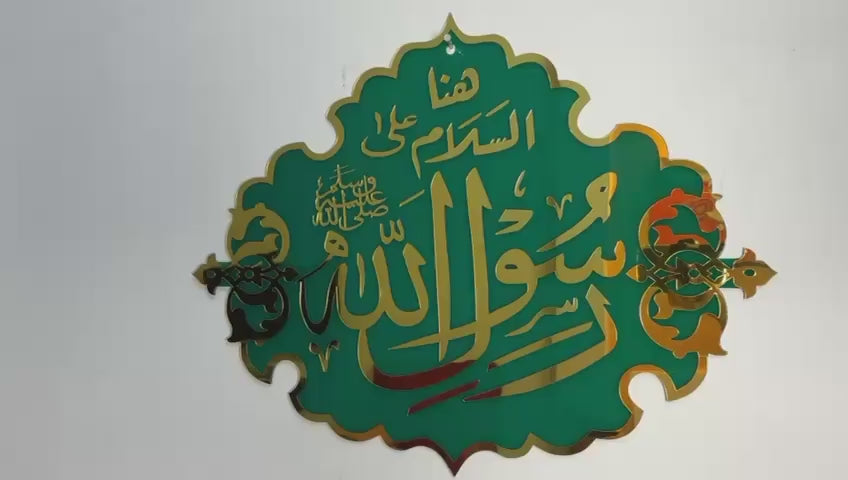 هنا
السلام على
رسول الله
صلى الله عليه وسلم